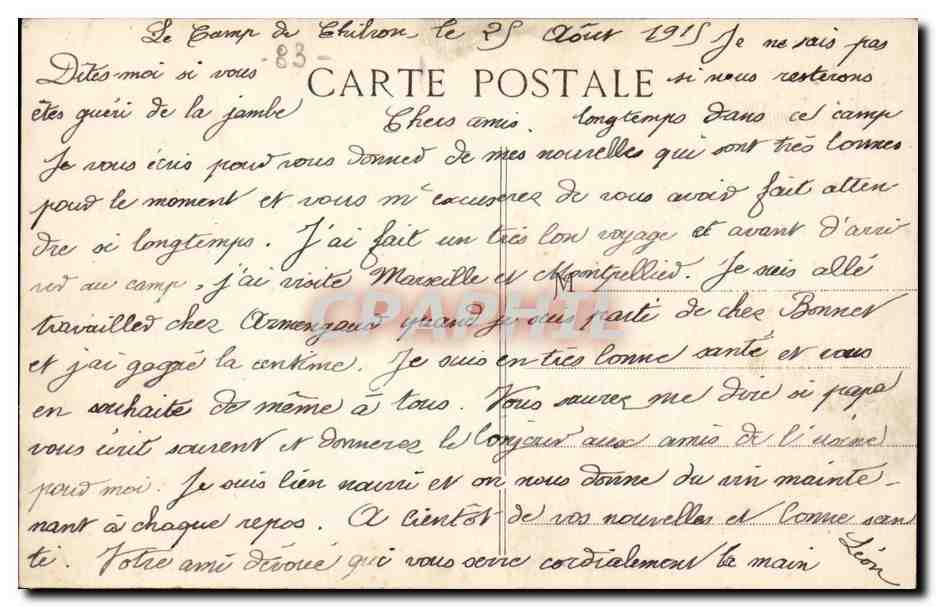 Le Camp de Chibron, le 25 Août 1915
Je ne sais pas
- 83 -
Dites-moi si vous
CARTE POSTALE
si nous resterons
êtes guéri de la jambe
Chers amis.
longtemps dans ce camp
Je vous écris pour vous donner de mes nouvelles qui sont très bonnes
pour le moment et vous m'excuserez de vous avoir fait atten-
dre si longtemps. J'ai fait un très bon voyage et avant d'arri
ver au camp, j'ai visité Marseille et Montpellier. Je suis allé
travailler chez Armengaud quand je suis parti de chez Bonnet
et j'ai gagné la centime. Je suis en très bonne santé et vous
en souhaite de même à tous. Vous saurez me dire si papa
vous écrit souvent et donnerez le bonjour aux amis de l'usine
pour moi. Je suis bien nourri et on nous donne du vin mainte-
nant à chaque repos. A bientôt de vos nouvelles et bonne san
té. Votre ami dévoué qui vous serre cordialement la main
Léon
CPAPHIL